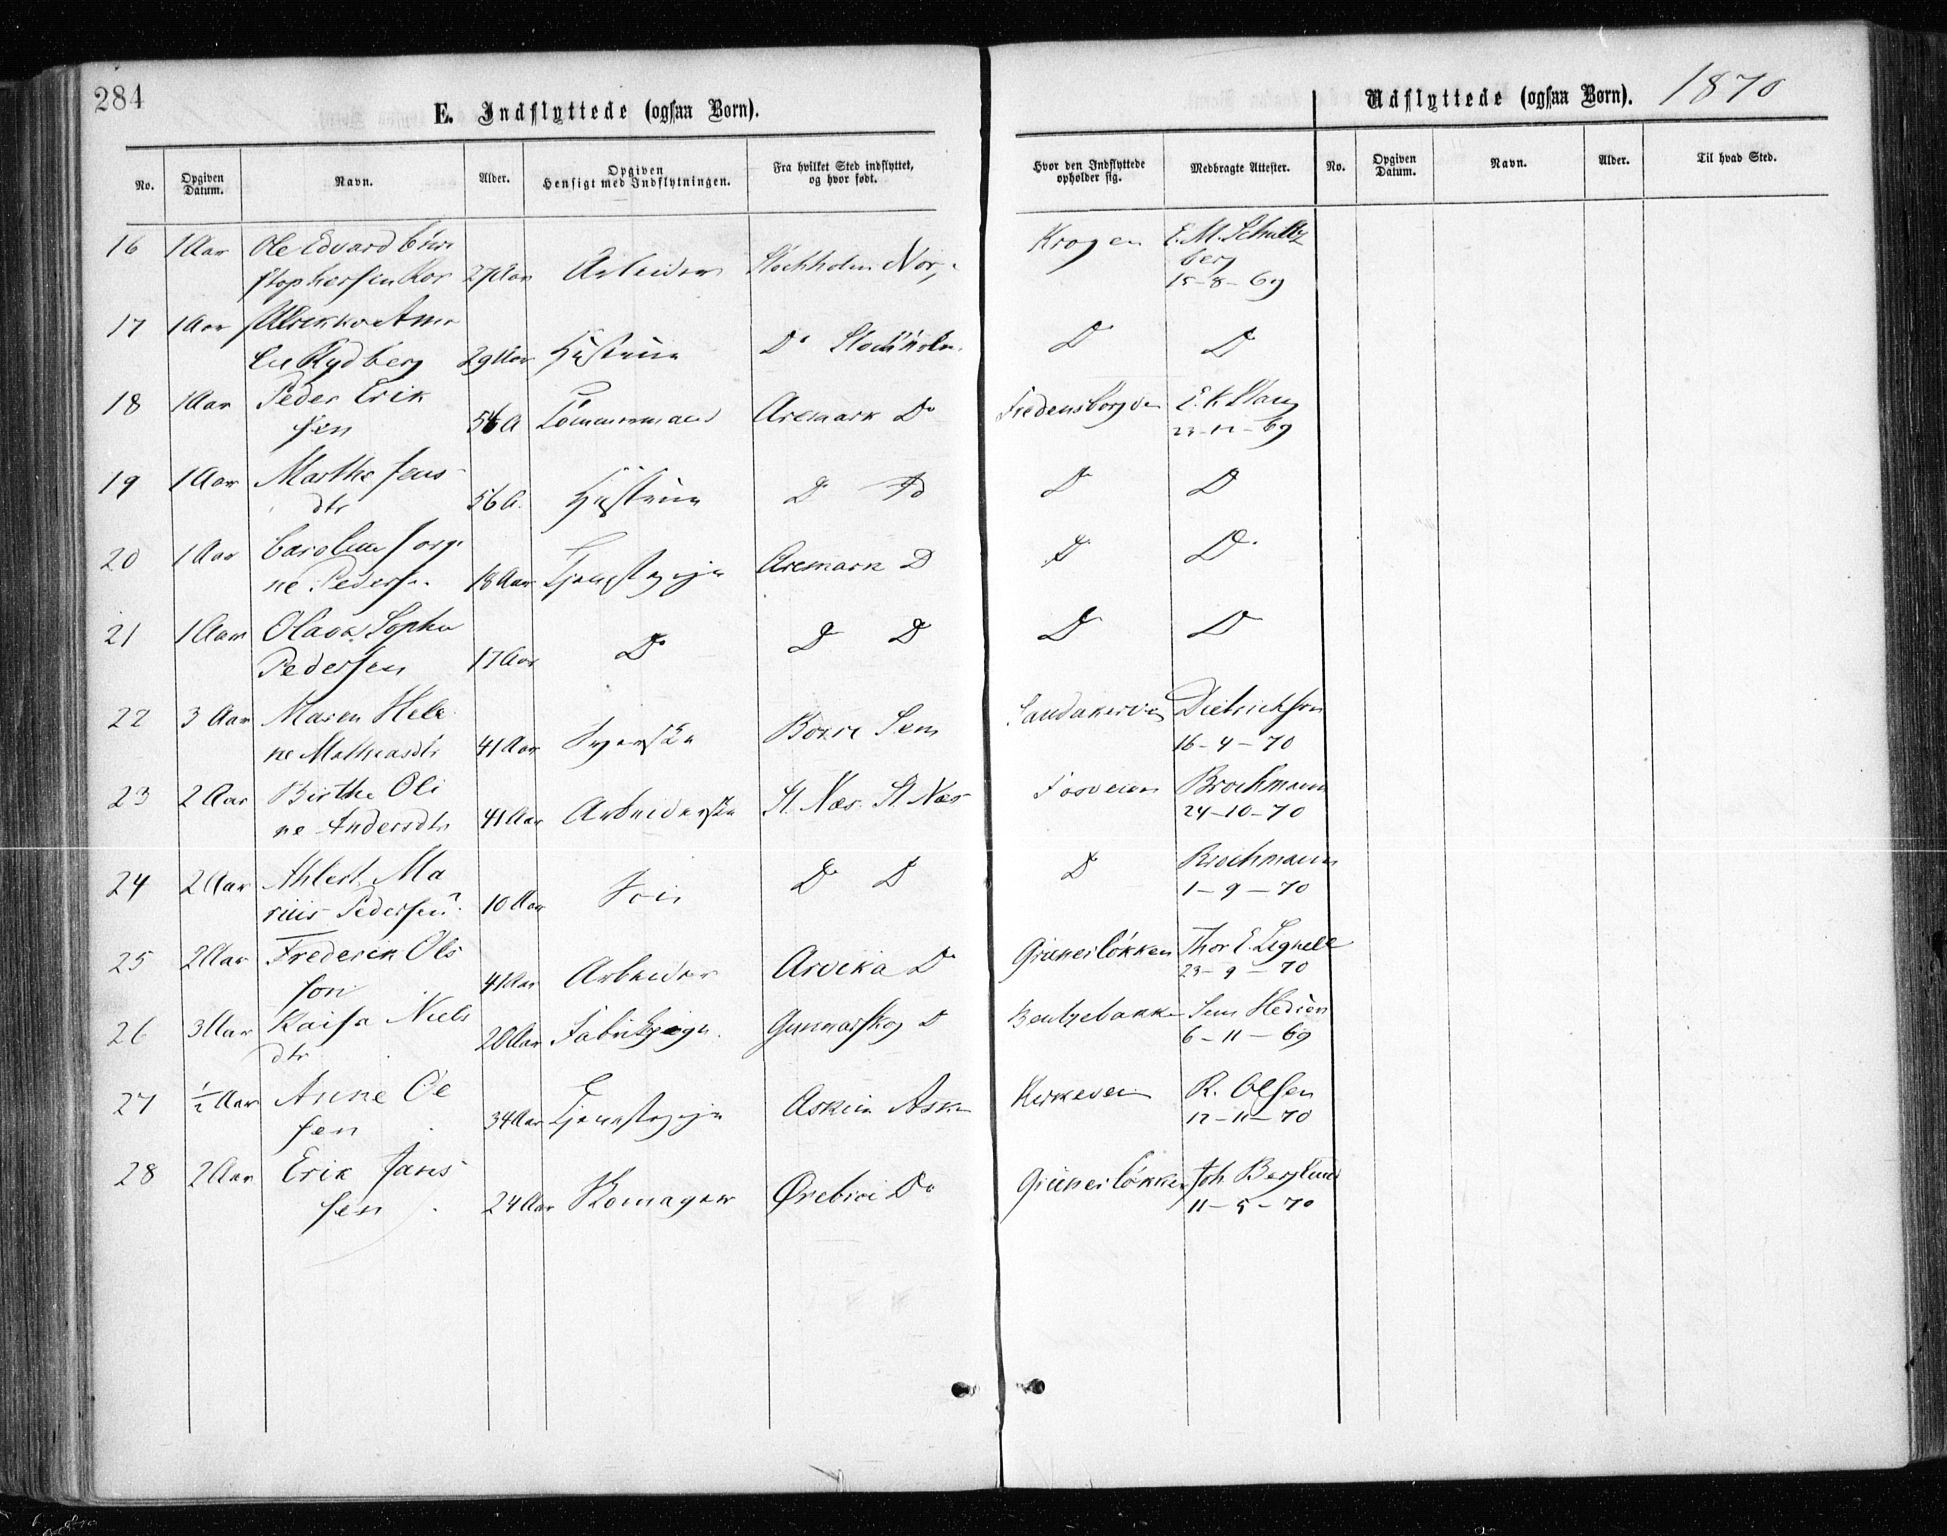 284
E. Indflyttede (ogsaa Børn).
Udflyttede (ogsaa Børn). 1870
No. Opgiven Datum. Navn. Alder. Opgiven Hensigt med Indflytningen. Fra hvilket Sted indflyttet, og hvor født. Hvor den Indflyttede opholder sig. Medbragte Attester. No. Opgiven Datum. Navn. Alder. Til hvad Sted.
16 1 Aar Ole Edvard Chri
stophersen 27 Aar Arbeider Stockholm Krogen E. M. Schultz
berg
15-8-69
17 1 Aar
Rydberg 29 Aar Hustrue Do Stockholm D D
18 1 Aar Peder Erik
sen Tømmermand Aremark Do Fredensborgv
23-12-69
19 1 Aar Marthe Jens
dtr 56 A. Hustrue D D D D
20 1 Aar Caroline Jorgi
ne Peders. 18 Aar Tjenestepige Aremark D D D
21 1 Aar Olava Sophie
Pedersen 17 Aar Do D D D D
22 3 Aar Maren Hele
ne Mathiasdtr 41 Aar Syerske Borre Sem Sandakerve Dietrichson
16-4-70
23 2 Aar Birthe Oli
ne Andersdtr 41 Aar Arbeiderske N. Næs. N. Næs Fosveien Brochmann
24-10-70
24 2 Aar Ahlert Ma
rius Pedersen 10 Aar Søn D D D Brochmann
1-9-70
25 2 Aar Frederik Ols
son 41 Aar Arbeider Arvika Do Grünerløkken Thor E. Legnell
23-9-70
26 3 Aar Kaisa Niels
dtr 20 Aar Fabrikpige. Gunnarskog D Bentzebakke
6-11-69
27 ½ Aar Anne Ol
sen 34 Aar Tjenestepige Askim Ask Kirkevei R. Olsen
12-11-70
28 2 Aar Erik Jans
sen 24 Aar Skomager Ørebro Do Grünerløkken Joh. Berglund
11-5-70